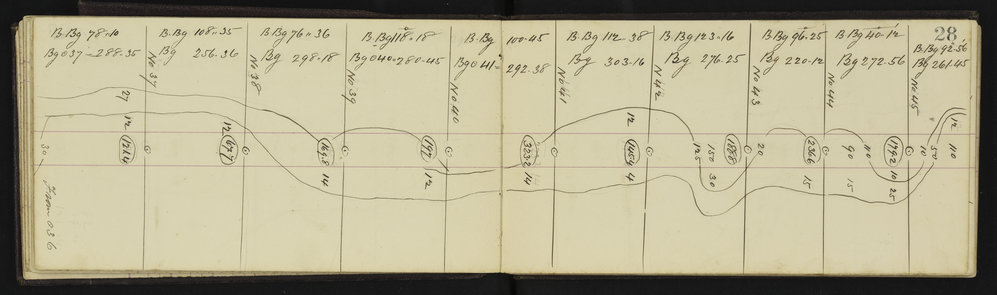 28
B.Bg 78-10
Bg 037-288-35
B.Bg 108-35
Bg 256-36
B.Bg 76-36
Bg 298-18
B.Bg 118-18
Bg 040-280-45
B.Bg 100-45
Bg 041-292-38
B.Bg 112-38
Bg 303-16
B.Bg 123-16
Bg 276-25
B.Bg 96-25
Bg 220-12
B.Bg 40-12
Bg 272-56
B.Bg 92-56
Bg 261-45
No 37
No 38
No 39
No 40
No 41
No 42
No 43
No 44
No 45
27
12
1214
12
677
1698
14
192
12
3232
14
12
1454
4
125
150
30
1888
20
2366
15
90
110
15
1792
10
25
10
50
12
110
30
From 036